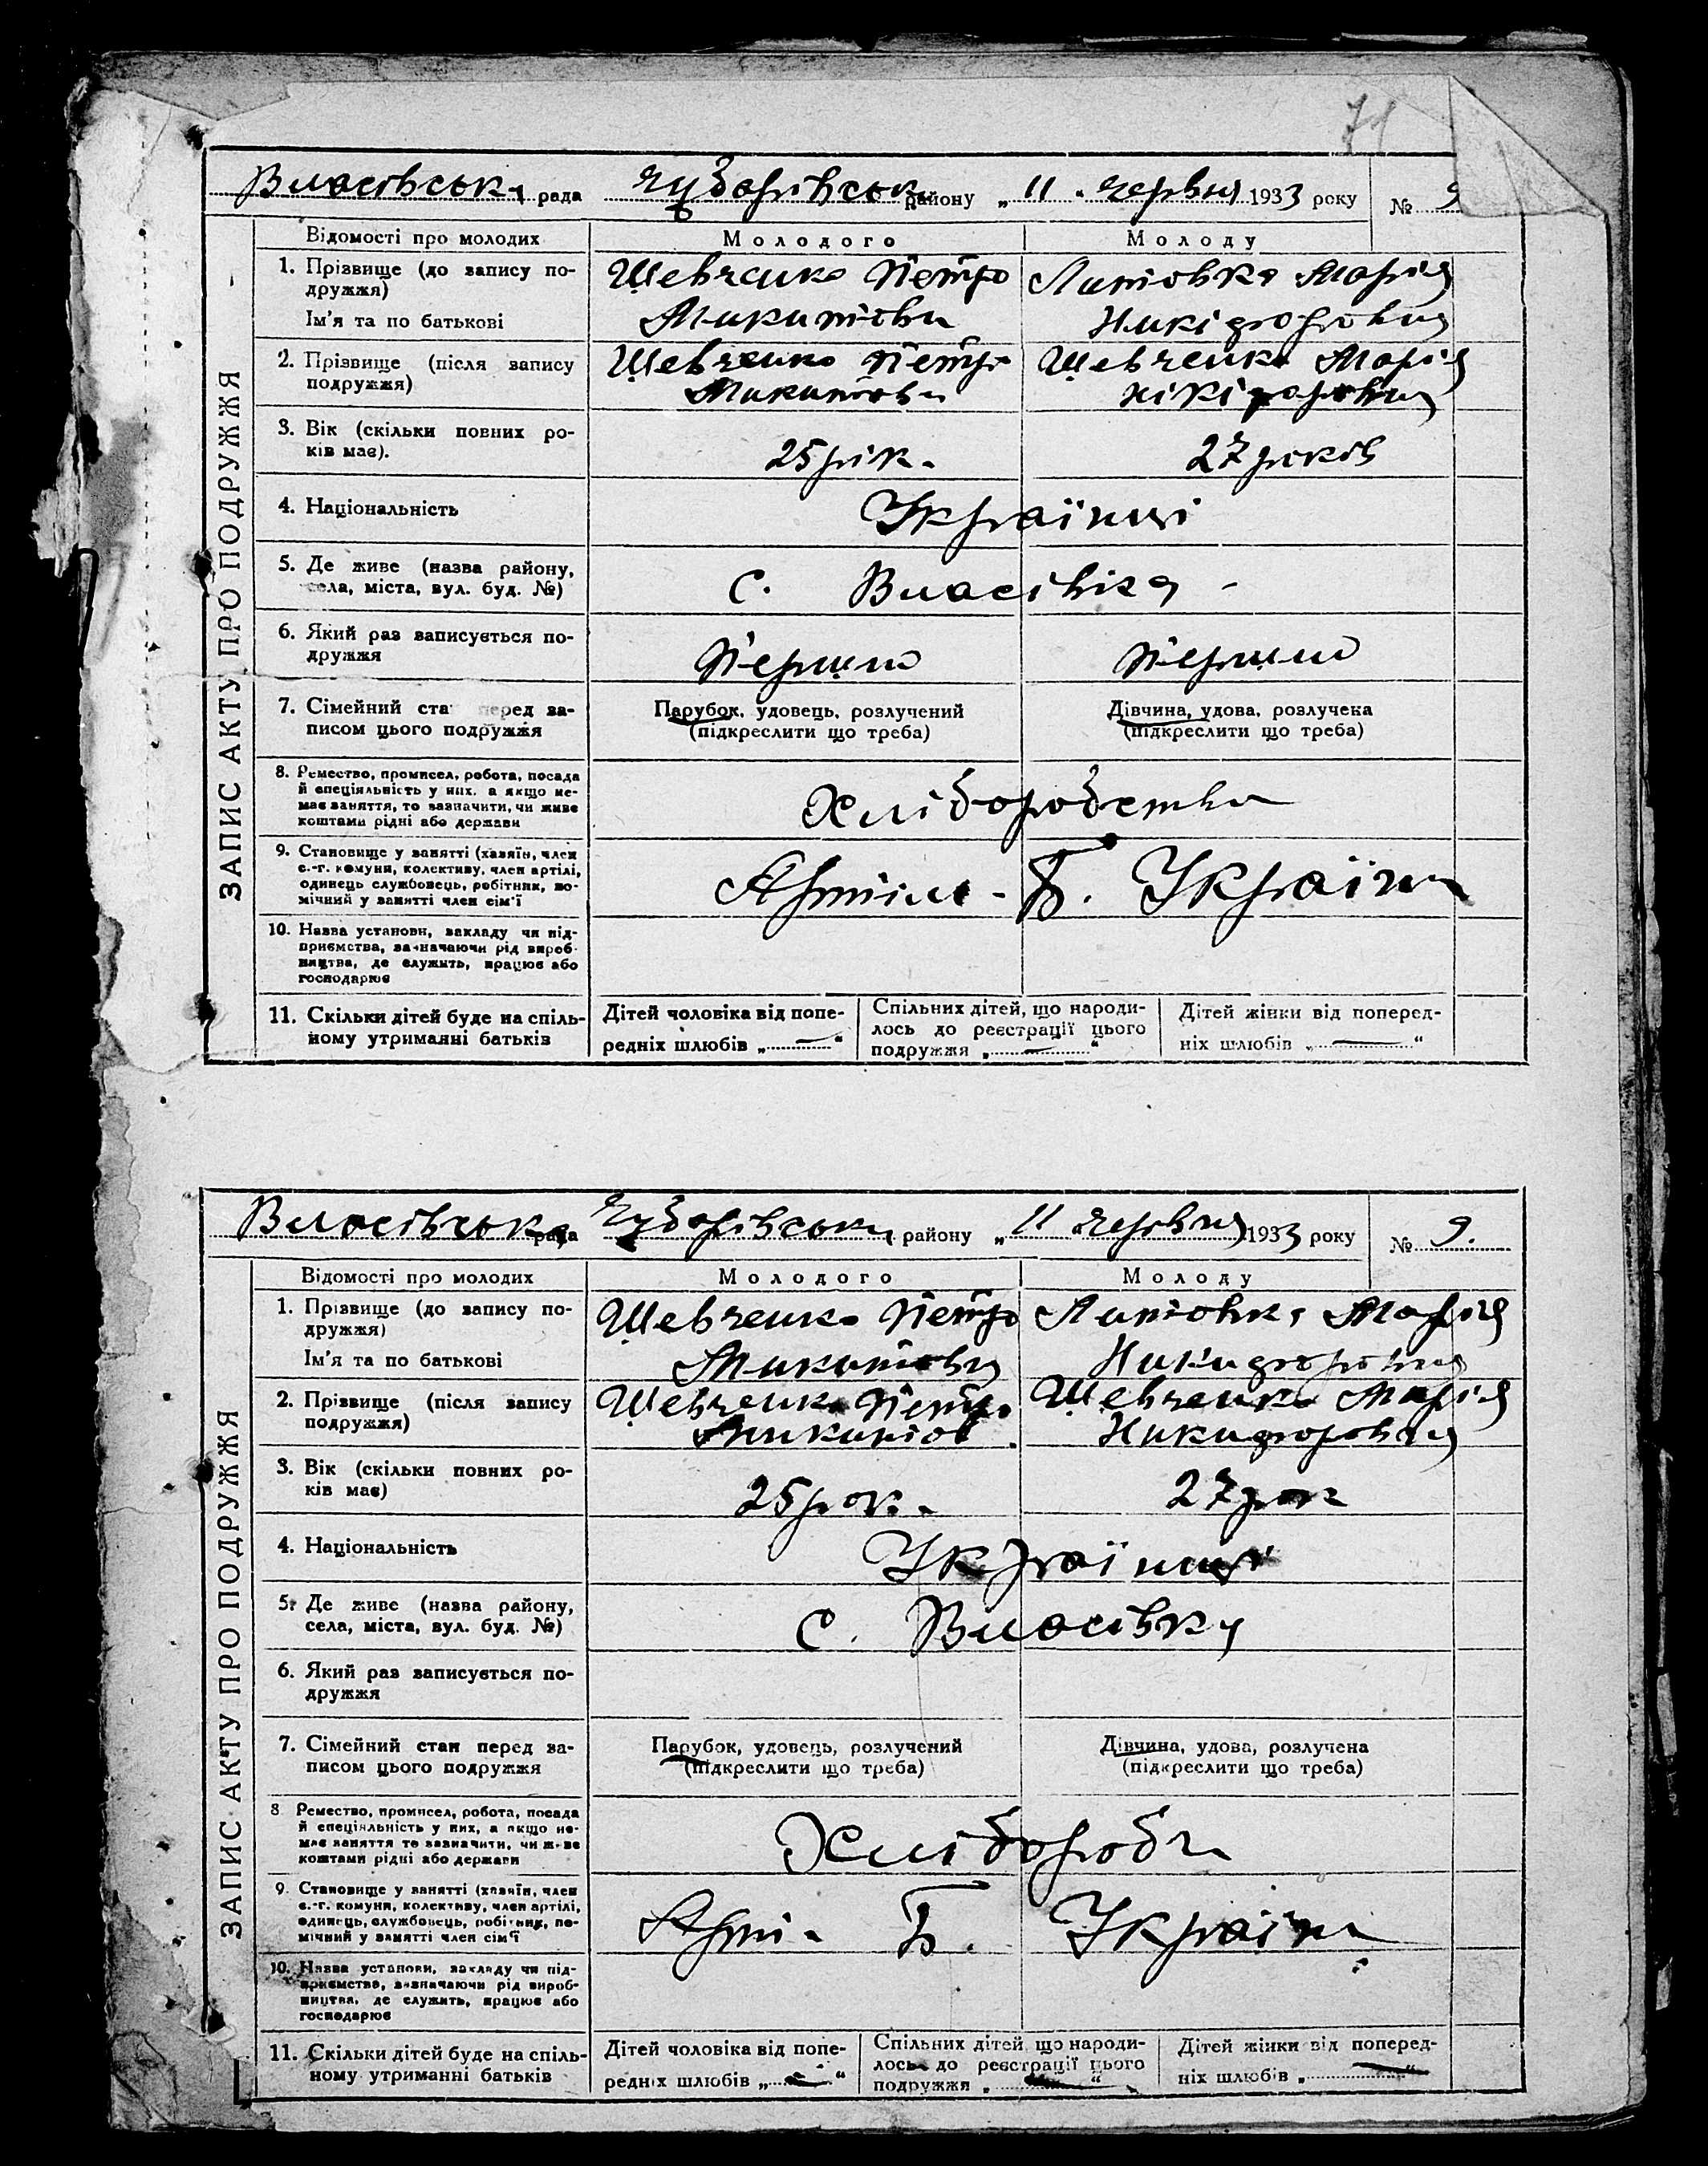 71
Власівська рада Чубарівськ району „ 11 . червня 1933 року № 9
ЗАПИС АКТУ ПРО ПОДРУЖЖЯ
Відомості про молодих Молодого Молоду
1. Прізвище (до запису по- Шевченко Петро Литовка Марія
дружжя)
Ім'я та по батькові Микитови Никіфоровна
2. Прізвище (після запису Шевченко Петро Шевченко Марія
подружжя) Микитови Нікіфоровна
3. Вік (скільки повних ро-
ків має). 25 рік. 27 років
4. Національність Українці
5. Де живе (назва району,
села, міста, вул. буд. №) с. Власівка -
6. Який раз записується по-
дружжя Перший Перший
7. Сімейний ста перед за- Парубок, удовець, розлучений Дівчина, удова, розлучека
писом цього подружжя (підкреслити що треба) (підкреслити що треба)
8. Ремество, промисел, робота, посада
й спеціяльність у них, а якщо не-
має заняття, то зазначити, чи живе
коштами рідні або держави Хліборобства
9. Становище у занятті (хазяїн, член
с.-г. комуни, колективу, член артілі,
одинець службовець, робітник, по-
мічний у занятті член сім'ї Артіль - Б. Україна
10. Назва установи, закладу чи під-
приємства, зазначаючи рід вироб-
ництва, де служить, працює або
господарює
11. Скільки дітей буде на спіль- Дітей чоловіка від попе- Спільних дітей, що народи- Дітей жінки від поперед-
ному утриманні батьків редніх шлюбів „ — “ лось до реєстрації цього ніх шлюбів „ — “
подружжя „ — “
Власівська рада Чубарівська району „ 11 червня 1933 року № 9.
ЗАПИС АКТУ ПРО ПОДРУЖЖЯ
Відомості про молодих Молодого Молоду
1. Прізвище (до запису по- Шевченко Петро Литовка Марія
дружжя)
Ім'я та по батькові Микитови Никифоровна
2. Прізвище (після запису Шевченко Петро Шевченко Марія
подружжя) Микитов. Никифоровна
3. Вік (скільки повних ро-
ків має) 25 рок. 27 рок
4. Національність Українці
5. Де живе (назва району,
села, міста, вул. буд. №) с. Власівка
6. Який раз записується по-
дружжя
7. Сімейний стан перед за- Парубок, удовець, розлучений Дівчина, удова, розлучена
писом цього подружжя (підкреслити що треба) (підкреслити що треба)
8. Ремество, промисел, робота, посада
й спеціяльність у них, а якщо не-
має заняття то зазначити, чи живе
коштами рідні або держави Хлібороба
9. Становище у занятті (хазяїн, член
с.-г. комуни, колективу, член артілі,
одинець, службовець, робітник, по-
мічний у занятті член сім'ї Арті. Б. Україна
10. Назва установи, закладу чи під-
приємства, зазначаючи рід вироб-
ництва, де служить, працює або
господарює
11. Скільки дітей буде на спіль- Дітей чоловіка від попе- Спільних дітей, що народи- Дітей жінки від поперед-
ному утриманні батьків редніх шлюбів „ — “ лось до реєстрації цього ніх шлюбів „ — “
подружжя „ — “